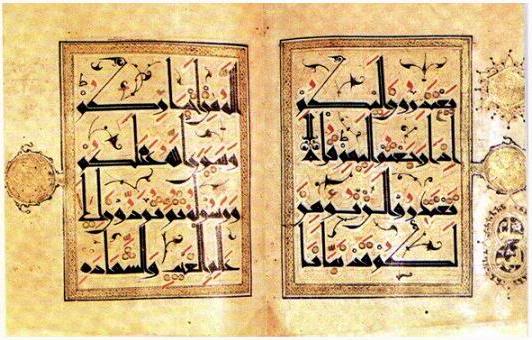 يعتذرون اليكم
اذا رجعتم اليهم قل لا
تعتذروا لن نؤمن
لكم قد نبانا
الله من اخباركم
وسيرى الله عملكم
ورسوله ثم تردون الى
علم الغيب والشهادة